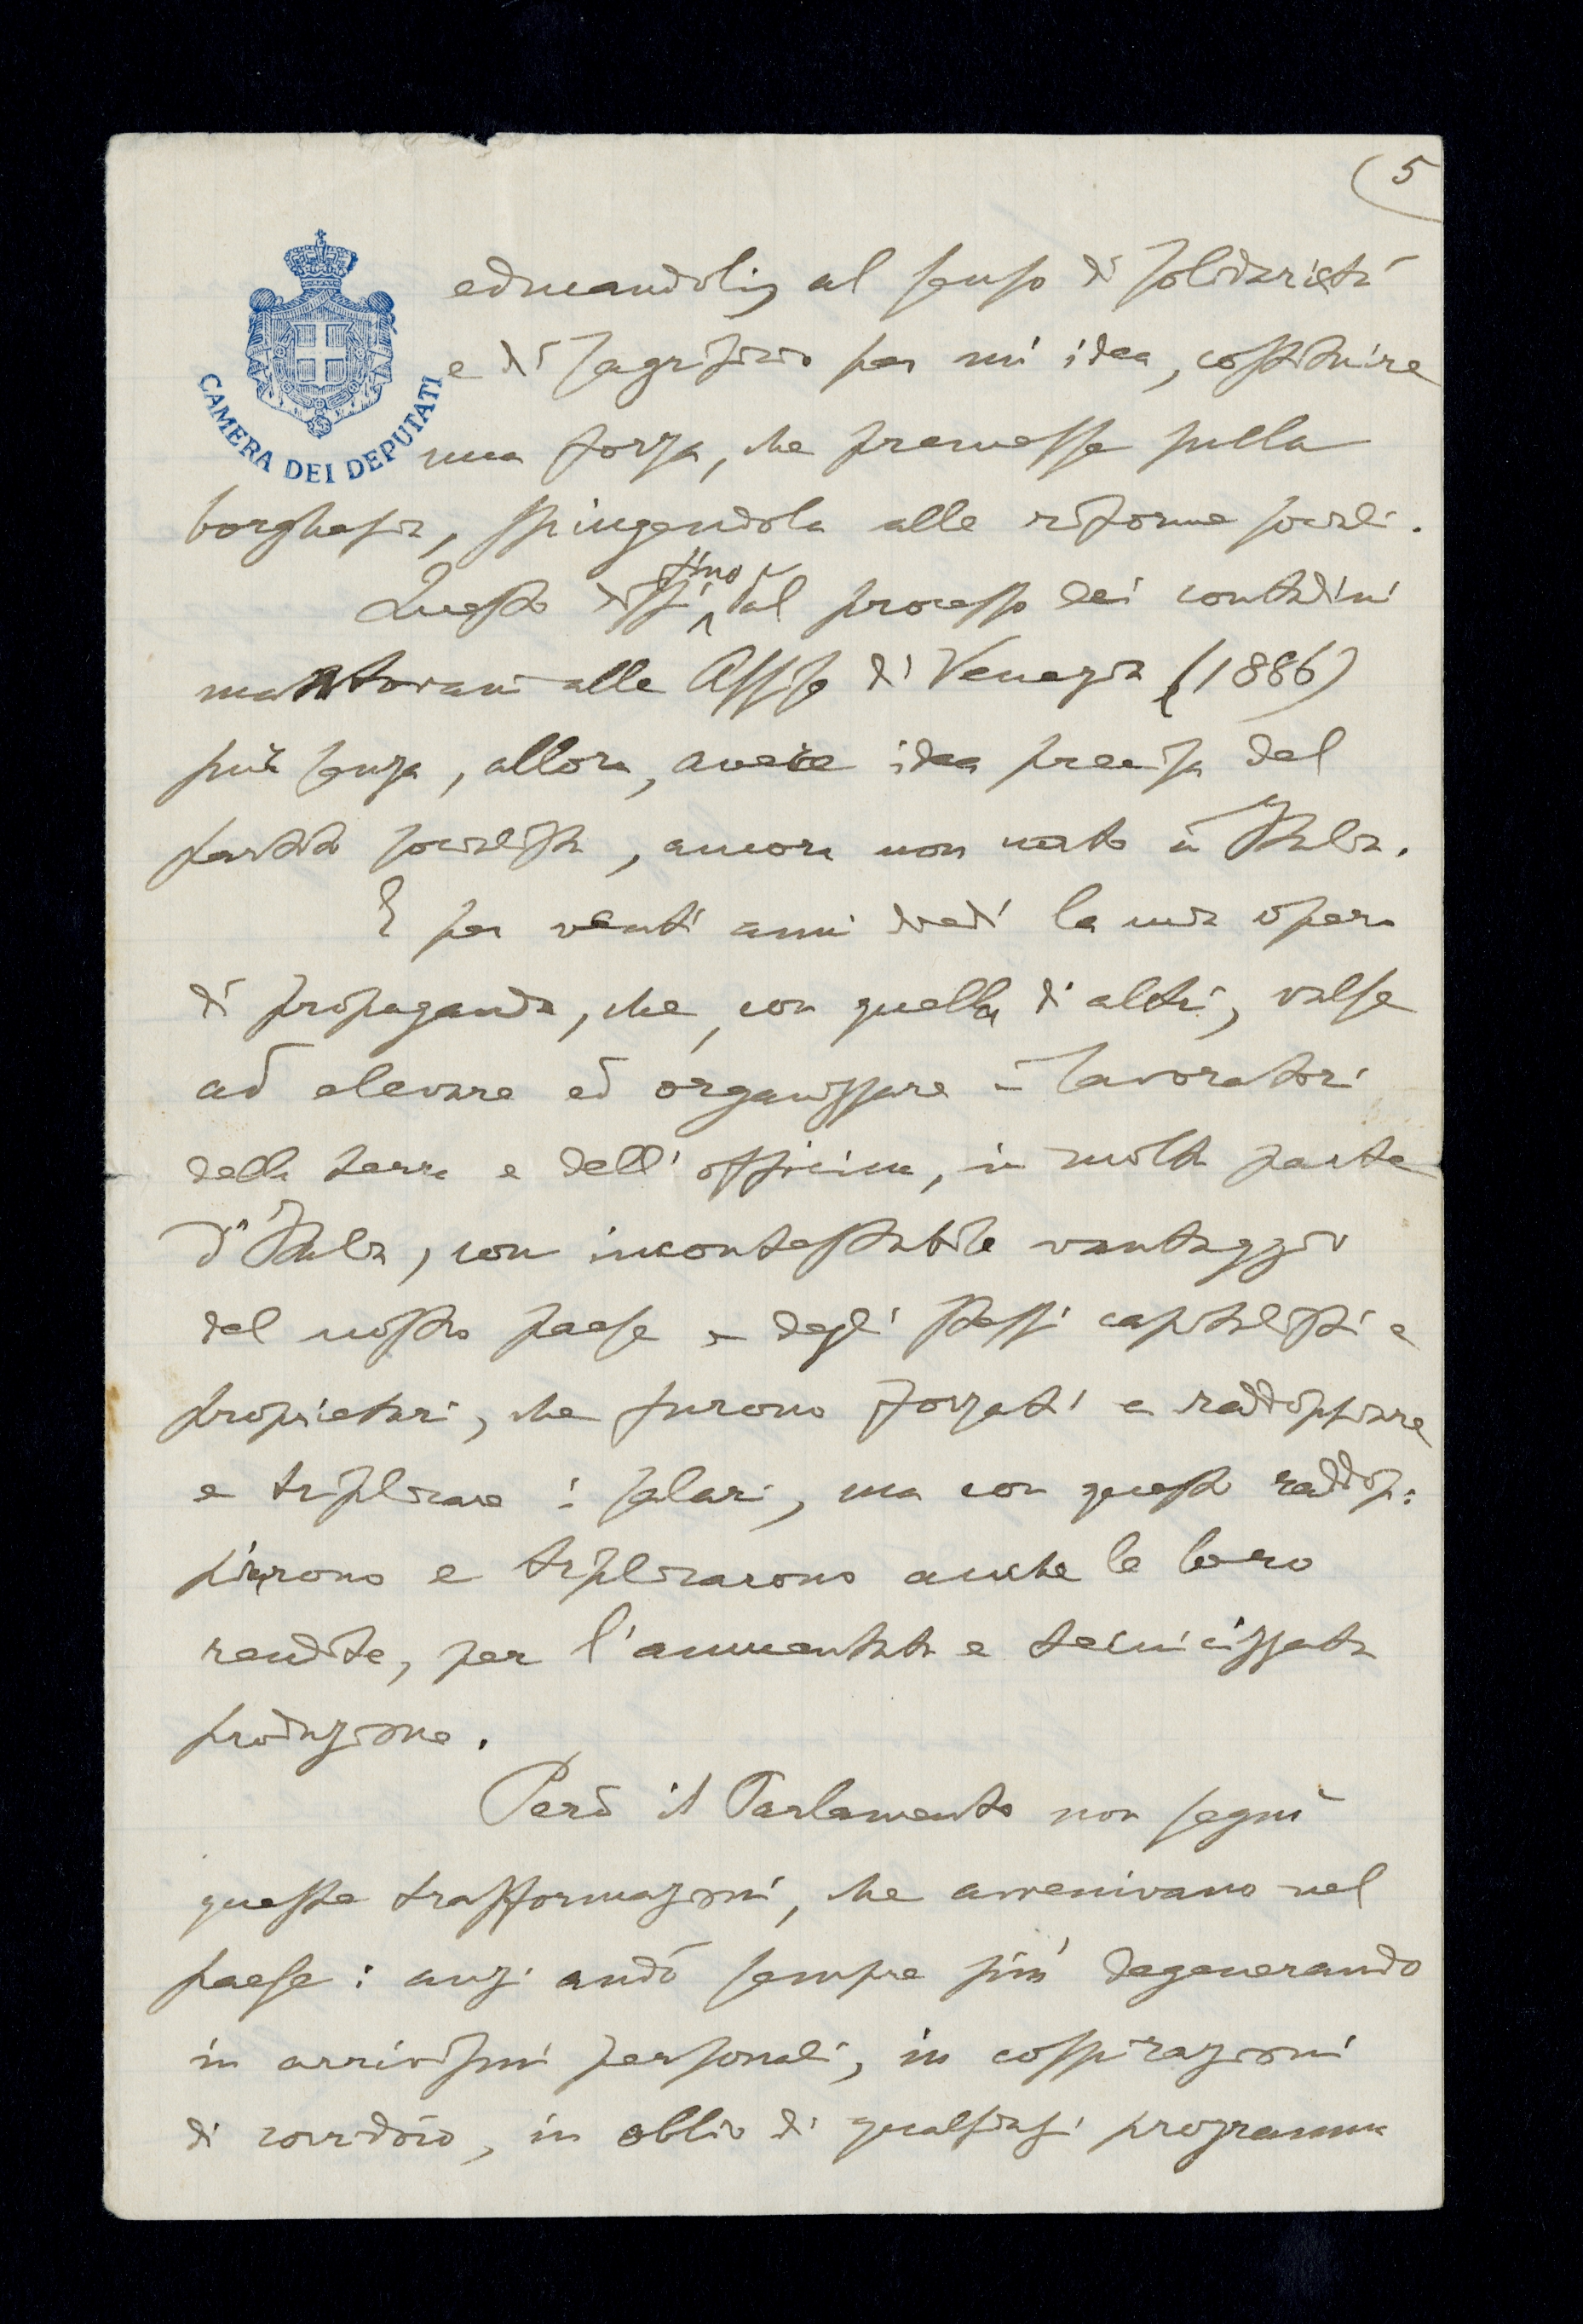 5
CAMERA DEI DEPUTATI
educandoli, al senso di solidarietà
e di sagrificio per un'idea, costituire
una forza, che premesse sulla
borghesia, spingendola alle riforme sociali.
fino
Questo dissi dal processo dei contadini
mantovani alle Assise di Venezia (1886)
pur senza, allora, avere idea precisa del
partito socialista, ancora non nato in Italia.
E per venti anni diedi la mia opera
di propaganda, che, con quella di altri, valse
ad elevare ed organizzare i lavoratori
della terra e dell'officina, in molta parte
d'Italia, con incontestabile vantaggio
del nostro paese e degli stessi capitalisti e
propietari, che furono forzati a raddoppiare
e triplicare i salari, ma con questo raddop:
piarono e triplicarono anche le loro
rendite, per l'aumentata e tecnicizzata
produzione.
Però il Parlamento non seguì
queste trasformazioni, che avvenivano nel
paese: anzi andò sempre più degenerando
in arrivismi personali, in cospirazioni
di corridoio, in oblio di qualsiasi programma